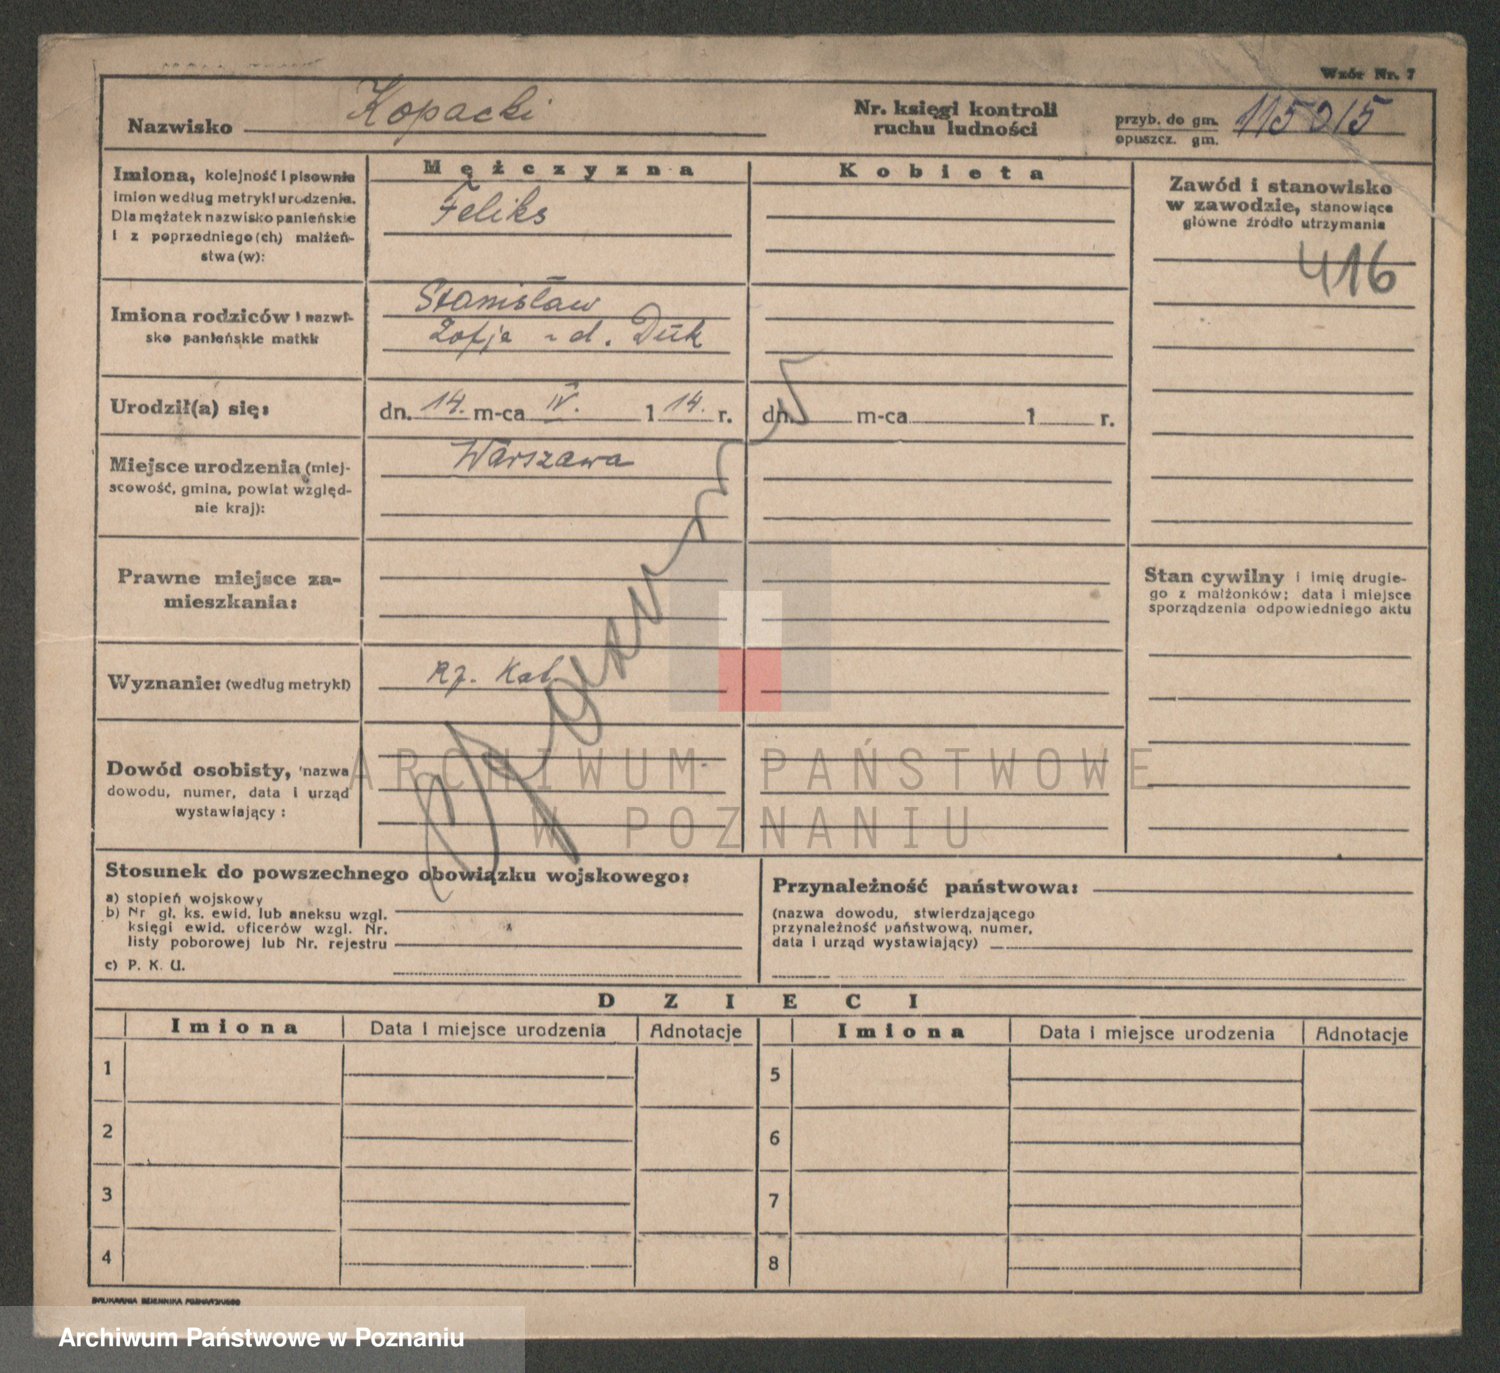 Wzór Nr. 7
Nazwisko Kopacki
Nr. księgi kontroli
ruchu ludności
przyb. do gm.
opuszcz. gm.
115015
Imiona, kolejność i pisownia
imion według metryki urodzenia.
Dla mężatek nazwisko panieńskie
i z poprzedniego(ch) małżeń-
stwa (w):
Mężczyzna
Feliks
Kobieta
Zawód i stanowisko
w zawodzie, stanowiące
główne źródło utrzymania
416
Imiona rodziców i nazwi-
sko panieńskie matki
Stanisław
Zofja z d. Duk
Urodził(a) się:
dn. 14. m-ca IV. 1 14. r.
dn. m-ca 1 r.
Miejsce urodzenia (miej-
scowość, gmina, powiat względ-
nie kraj):
Warszawa
Prawne miejsce za-
mieszkania:
Stan cywilny i imię drugie-
go z małżonków; data i miejsce
sporządzenia odpowiedniego aktu
Wyznanie: (według metryki)
Rz. Kat.
Dowód osobisty, nazwa
dowodu, numer, data i urząd
wystawiający:
ARCHIWUM PAŃSTWOWE
W POZNANIU
Stosunek do powszechnego obowiązku wojskowego:
a) stopień wojskowy
b) Nr gł. ks. ewid. lub aneksu wzgl.
księgi ewid. oficerów wzgl. Nr.
listy poborowej lub Nr. rejestru
c) P. K. U.
Przynależność państwowa:
(nazwa dowodu, stwierdzającego
przynależność państwową, numer,
data i urząd wystawiający)
DZIECI
Imiona Data i miejsce urodzenia Adnotacje Imiona Data i miejsce urodzenia Adnotacje
1 5
2 6
3 7
4 8
DRUKARNIA DZIENNIKA POZNAŃSKIEGO
Archiwum Państwowe w Poznaniu